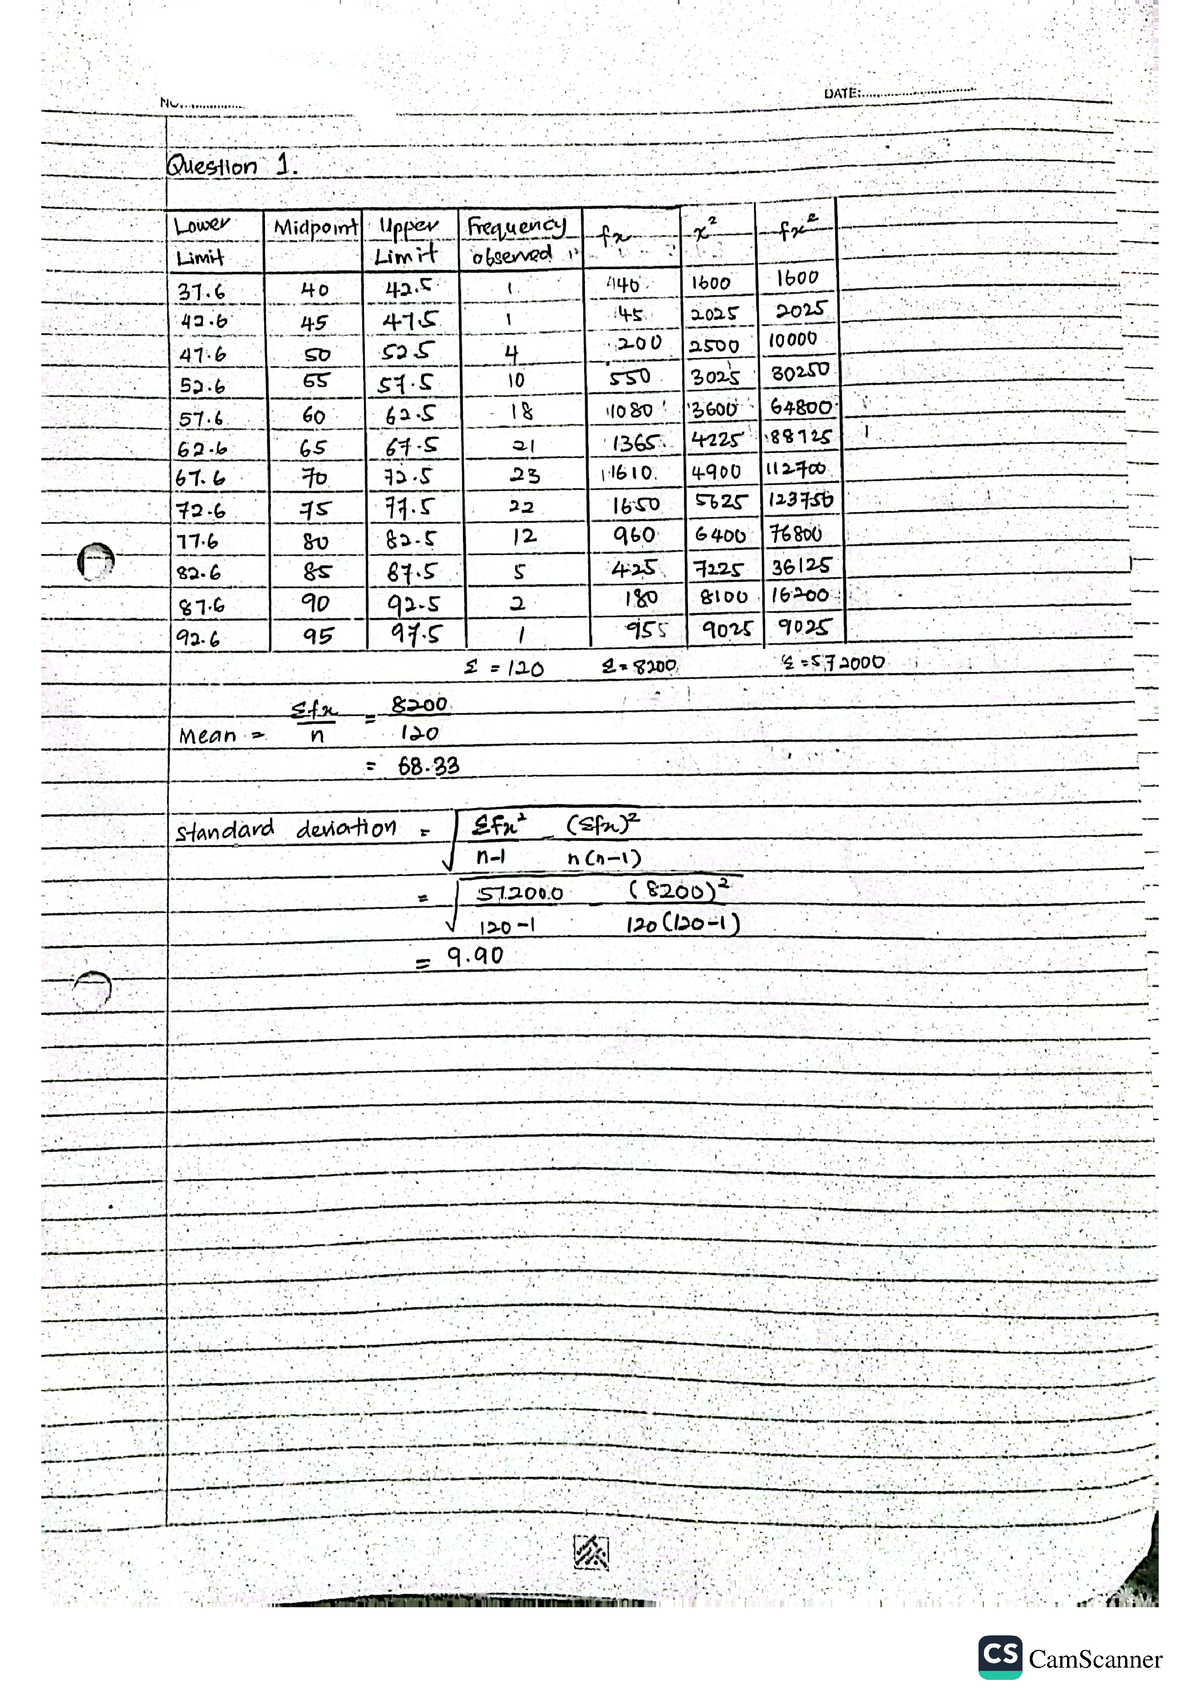 NO.................
DATE:................................
Question 1.
Lower Limit | Midpoint | Upper Limit | Frequency observed | fx | x² | fx²
37.6 | 40 | 42.5 | 1 | 40 | 1600 | 1600
42.6 | 45 | 47.5 | 1 | 45 | 2025 | 2025
47.6 | 50 | 52.5 | 4 | 200 | 2500 | 10000
52.6 | 55 | 57.5 | 10 | 550 | 3025 | 30250
57.6 | 60 | 62.5 | 18 | 1080 | 3600 | 64800
62.6 | 65 | 67.5 | 21 | 1365 | 4225 | 88725
67.6 | 70 | 72.5 | 23 | 1610 | 4900 | 112700
72.6 | 75 | 77.5 | 22 | 1650 | 5625 | 123750
77.6 | 80 | 82.5 | 12 | 960 | 6400 | 76800
82.6 | 85 | 87.5 | 5 | 425 | 7225 | 36125
87.6 | 90 | 92.5 | 2 | 180 | 8100 | 16200
92.6 | 95 | 97.5 | 1 | 95 | 9025 | 9025
Σ = 120 Σ = 8200 Σ = 572000
Mean = Σfx / n = 8200 / 120
= 68.33
Standard deviation = √ Σfx² / n-1 - (Σfx)² / n(n-1)
= √ 572000 / 120-1 - (8200)² / 120(120-1)
= 9.90
CS CamScanner